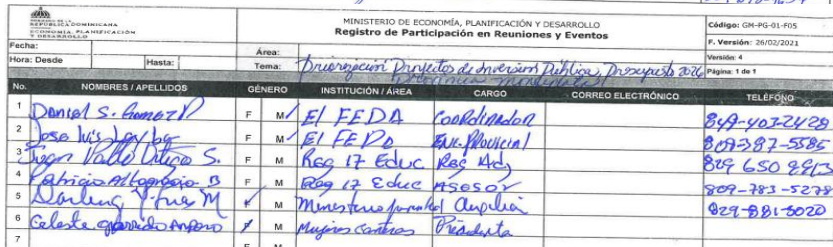 REPÚBLICA DOMINICANA
ECONOMÍA, PLANIFICACIÓN
Y DESARROLLO
MINISTERIO DE ECONOMÍA, PLANIFICACIÓN Y DESARROLLO
Registro de Participación en Reuniones y Eventos
Código: GM-PG-01-F05
F. Versión: 26/02/2021
Versión: 4
Página: 1 de 1
Fecha:
Hora: Desde Hasta:
Área:
Tema: Priorización Proyectos de Inversión Pública, Presupuesto 2026
No. NOMBRES / APELLIDOS GÉNERO INSTITUCIÓN / ÁREA CARGO CORREO ELECTRÓNICO TELÉFONO
1 Daniel S. Gomez F M El FEDA Coordinador 849-403-2428
2 Jose Luis F M El FEDA Enc. Provicial 809-387-5585
3 Juan Ortega S. F M Reg 17 Educ Reg Adj 829 650 9913
4 Patricia Altagracia B F M Reg 17 Educ Asesor 809-783-5278
5 M F M 829-881-5020
6 Celeste Garrido F M Mujeres
7 F M